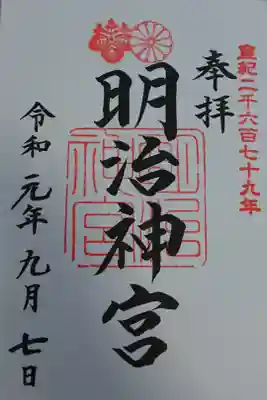 皇紀二千六百七十九年
奉拝
明治神宮
明治神宮
令和元年九月七日